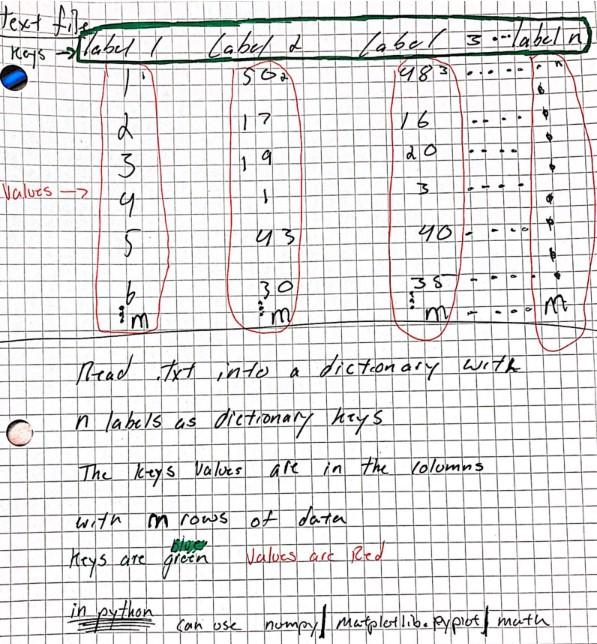 text file
Keys → label 1 label 2 label 3 ... label n
1 1 50 2 48 3 ..... n
2 17 16 ....
3 19 20 ....
Values → 4 1 3 ....
5 43 40 ....
6 30 38 ....
⋮ m ⋮ m ⋮ m ..... m
Read .txt into a dictionary with
n labels as dictionary keys
The keys values are in the columns
with m rows of data
Keys are green Values are Red
in python can use numpy / matplotlib.pyplot / math